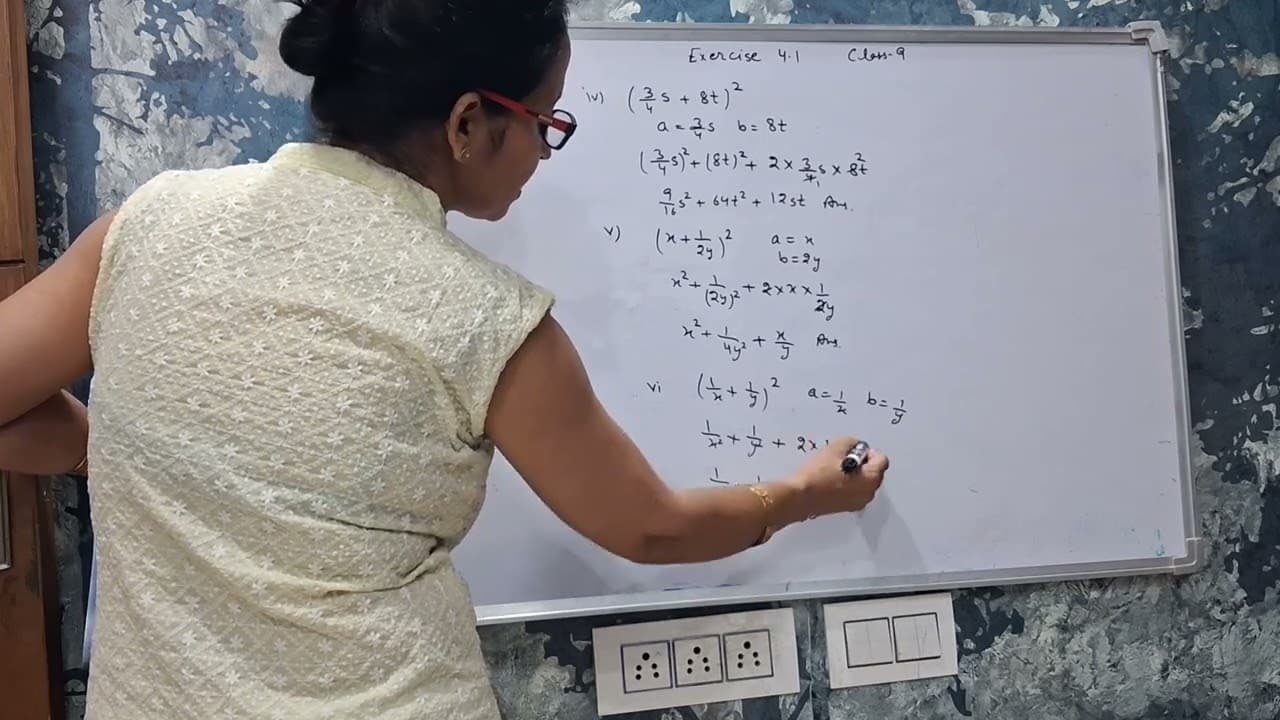 Exercise 4.1 Class-9
iv) (3/4 s + 8t)²
a = 3/4 s b = 8t
(3/4 s)² + (8t)² + 2 × 3/4₁ s × 8²t
9/16 s² + 64t² + 12st Ans.
v) (x + 1/2y)² a = x
b = 2y
x² + 1/(2y)² + 2 × x × 1/2y
x² + 1/4y² + x/y Ans.
vi (1/x + 1/y)² a = 1/x b = 1/y
1/x² + 1/y² + 2 ×